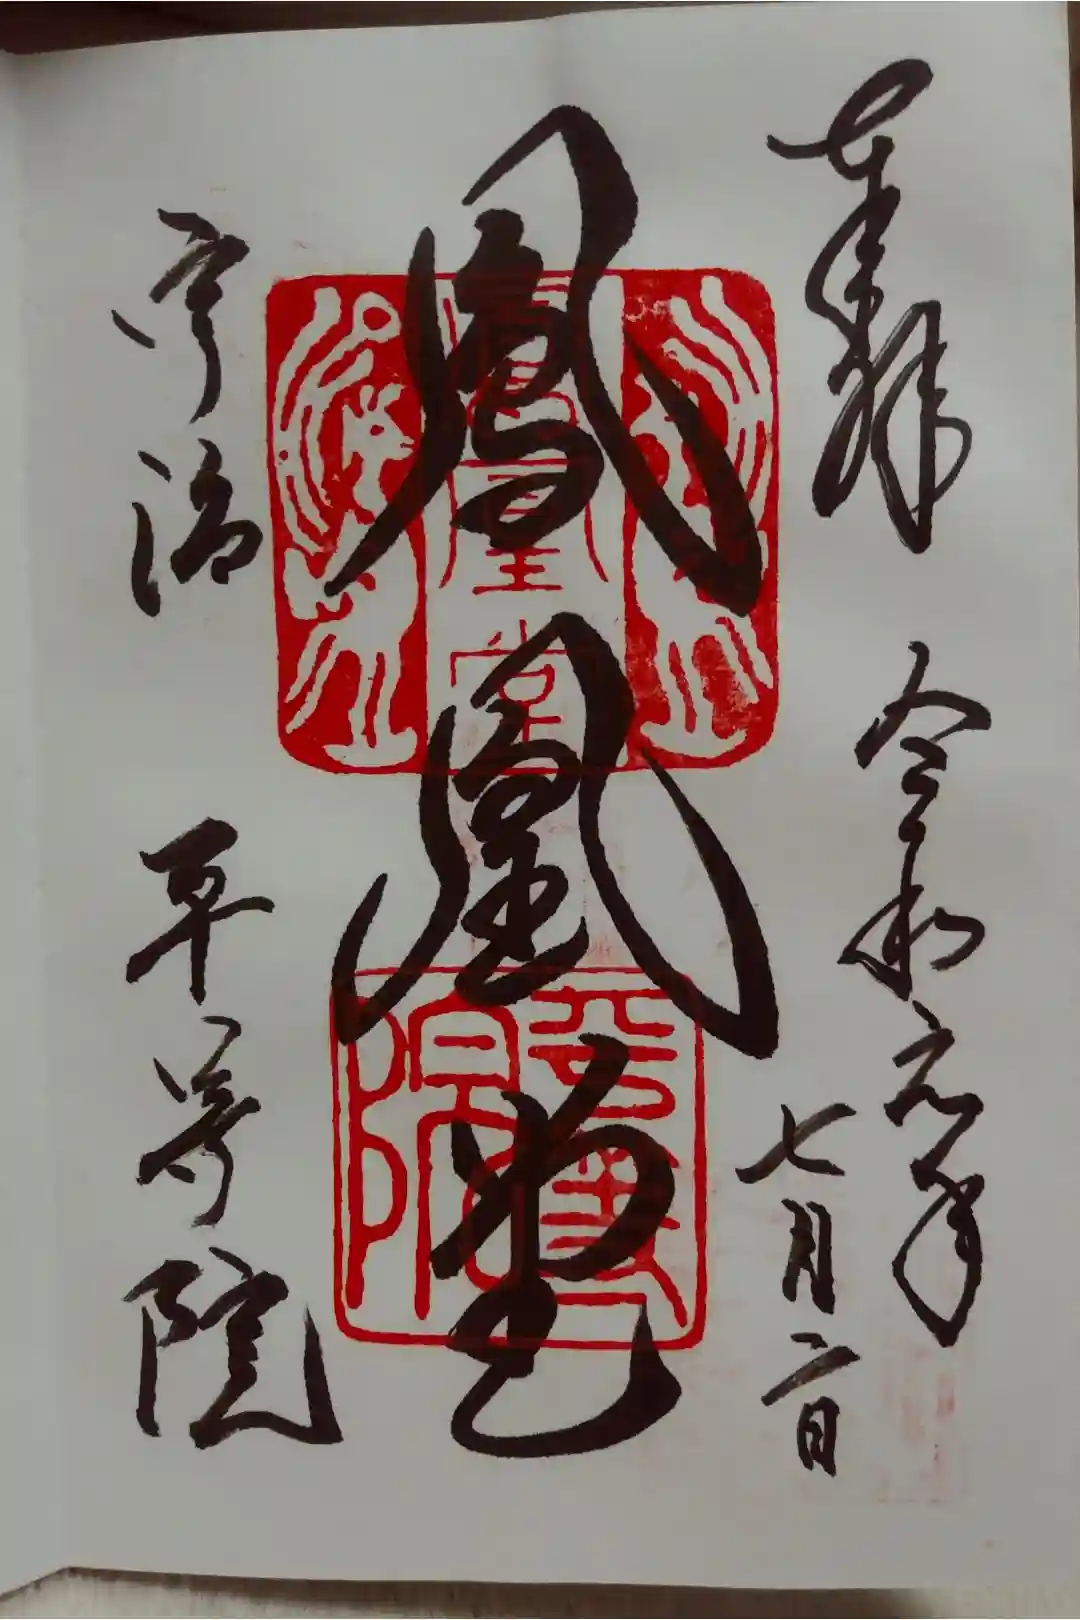 奉拝　令和元年
七月二日
鳳凰堂
宇治　平等院
鳳凰堂
平等院